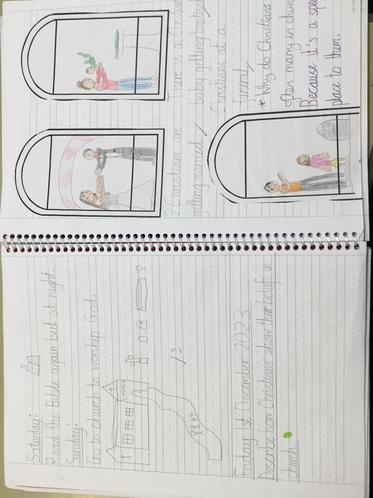 Saturday:
Read the Bible again but at night.
Sunday:
Go to church to worship God.
Friday 1st December 2023
Describe how Christians show their beliefs in
church
2 Christians are
getting married
There is a Christian
baby getting
Christians at a
* Why do Christians
often marry in church
Because it's a special
place to them.